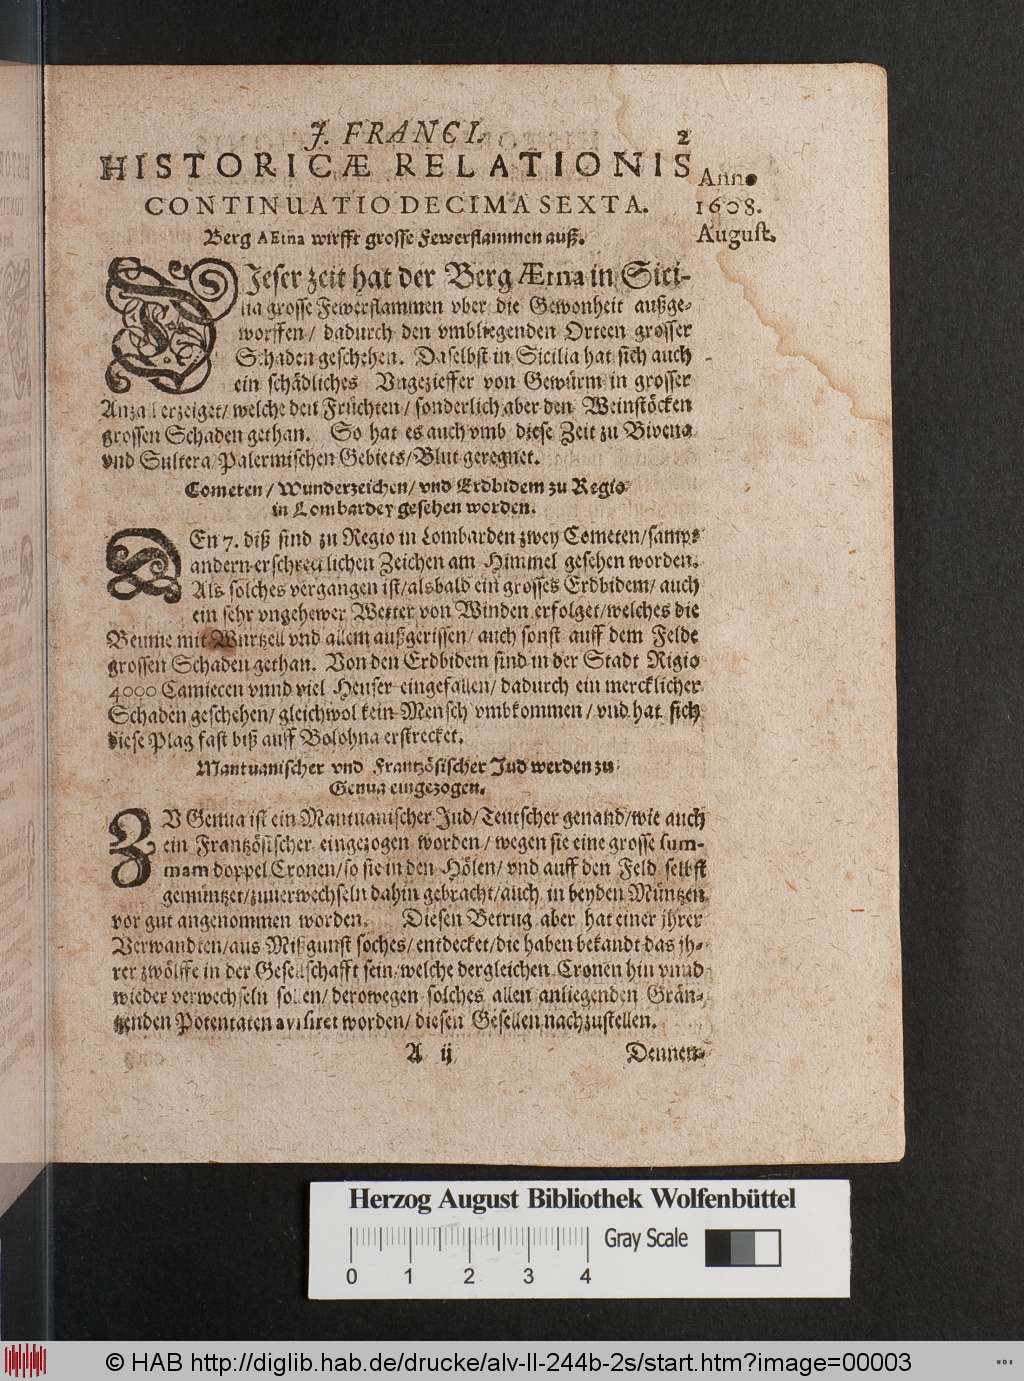 J. FRANCI. 2
HISTORICÆ RELATIONIS
CONTINUATIO DECIMA SEXTA.
Anno
1608.
August.
Berg AEtna wirfft grosse Fewerflammen auß.
DIeser zeit hat der Berg Ætna in Sici-
lia grosse Fewerflammen vber die Gewonheit außge-
worffen/ dadurch den vmbliegenden Orten grosser
Schaden geschehen. Daselbst in Sicilia hat sich auch
ein schädliches Vngezieffer von Gewürm in grosser
Anzal erzeiget/ welche den Früchten/ sonderlich aber den Weinstöcken
grossen Schaden gethan. So hat es auch vmb diese Zeit zu Bivena
vnd Sultera Palermischen Gebiets/ Blut geregnet.
Cometen/ Wunderzeichen/ vnd Erdbidem zu Regio
in Lombardey gesehen worden.
DEn 7. diß sind zu Regio in Lombarden zwey Cometen/ sampt
andern erschrecklichen Zeichen am Himmel gesehen worden.
Als solches vergangen ist/ alsbald ein grosses Erdbidem/ auch
ein sehr vngehewer Wetter von Winden erfolget/ welches die
Beume mit Wurtzell vnd allem außgerissen/ auch sonst auff dem Felde
grossen Schaden gethan. Von den Erdbidem sind in der Stadt Rigio
4000 Camiecen vnnd viel Heuser eingefallen/ dadurch ein mercklicher
Schaden geschehen/ gleichwol kein Mensch vmbkommen/ vnd hat sich
diese Plag fast biß auff Bolohna erstrecket.
Mantuanischer vnd Frantzösischer Jud werden zu
Genua eingezogen.
ZV Genua ist ein Mantuanischer Jud/ Teutscher genand/ wie auch
ein Frantzösischer eingezogen worden/ wegen sie eine grosse sum-
mam doppel Cronen/ so sie in den Hölen/ vnd auff den Feld selbst
gemüntzet/ zuuerwechseln dahin gebracht/ auch in beyden Müntzen
vor gut angenommen worden. Diesen Betrug aber hat einer jhrer
Verwandten/ aus Mißgunst soches/ entdecket/ die haben bekandt das jh-
rer zwölffe in der Gesellschafft sein/ welche dergleichen Cronen hin vnnd
wieder verwechseln sollen/ derowegen solches allen anliegenden Grän-
tzenden Potentaten avisiret worden/ diesen Gesellen nachzustellen.
A ij Dennen-
Herzog August Bibliothek Wolfenbüttel
Gray Scale
0 1 2 3 4
© HAB http://diglib.hab.de/drucke/alv-ll-244b-2s/start.htm?image=00003